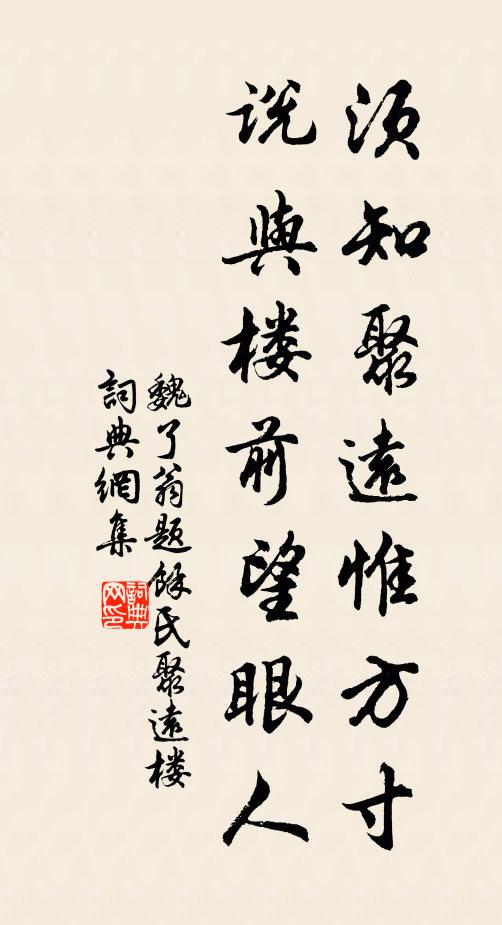 须知聚遠惟方寸
说與楼前望眼人
魏了翁题餘氏聚遠楼
詞典網集
詞典网印